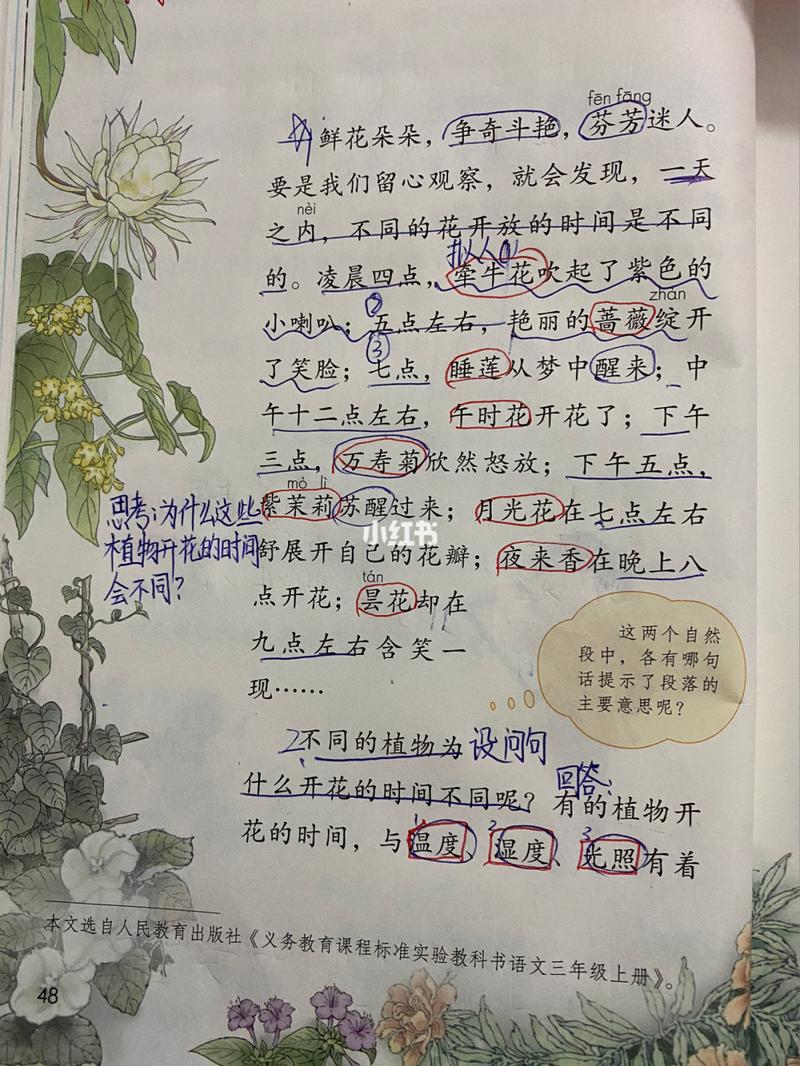 fēn fāng
1 鲜花朵朵，争奇斗艳，芬芳迷人。
要是我们留心观察，就会发现，一天
nèi
之内，不同的花开放的时间是不同
拟人①
的。凌晨四点，牵牛花吹起了紫色的
② zhàn
小喇叭；五点左右，艳丽的蔷薇绽开
③
了笑脸；七点，睡莲从梦中醒来；中
午十二点左右，午时花开花了；下午
三点，万寿菊欣然怒放；下午五点，
mò lì
紫茉莉苏醒过来；月光花在七点左右
舒展开自己的花瓣；夜来香在晚上八
tán
点开花；昙花却在
九点左右含笑一
现……
思考：为什么这些
植物开花的时间
会不同？
小红书
这两个自然
段中，各有哪句
话提示了段落的
主要意思呢？
2 不同的植物为 设问句
回答：
什么开花的时间不同呢？有的植物开
1 2 3
花的时间，与温度、湿度、光照有着
本文选自人民教育出版社《义务教育课程标准实验教科书语文三年级上册》。
48